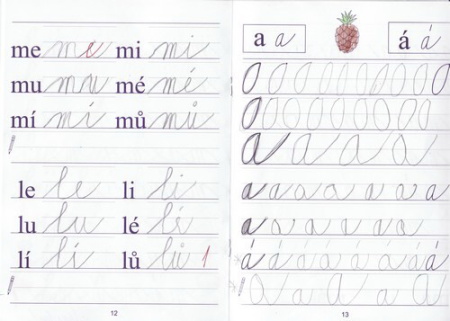 me me mi mi
mu mu mé mé
mí mí mů mů
le le li li
lu lu lé lé
lí lí lů lů 1
12
a a á á
a a a a a
a a a a a a a
a a a a a a a
á á á á á á á á
a a a a a a
13